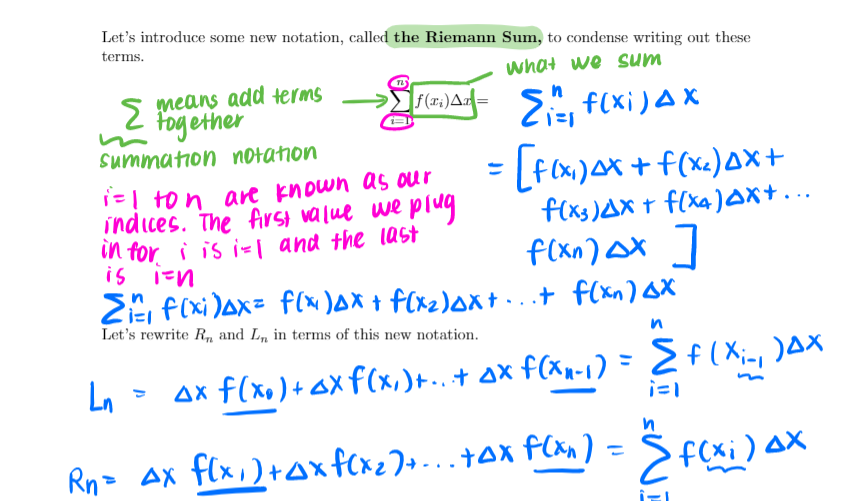 Let's introduce some new notation, called the Riemann Sum, to condense writing out these
terms.
what we sum
∑ means add terms
together
summation notation
n
∑ f(xᵢ)Δx =
i=1
∑ⁿᵢ₌₁ f(xᵢ)Δx
= [f(x₁)Δx + f(x₂)Δx +
f(x₃)Δx + f(x₄)Δx + ...
f(xₙ)Δx ]
i=1 to n are known as our
indices. The first value we plug
in for i is i=1 and the last
is i=n
∑ⁿᵢ₌₁ f(xᵢ)Δx = f(x₁)Δx + f(x₂)Δx + ... + f(xₙ)Δx
Let's rewrite Rₙ and Lₙ in terms of this new notation.
n
Lₙ = Δx f(x₀) + Δx f(x₁) + ... + Δx f(xₙ₋₁) = ∑ f(xᵢ₋₁)Δx
i=1
n
Rₙ = Δx f(x₁) + Δx f(x₂) + ... + Δx f(xₙ) = ∑ f(xᵢ)Δx
i=1